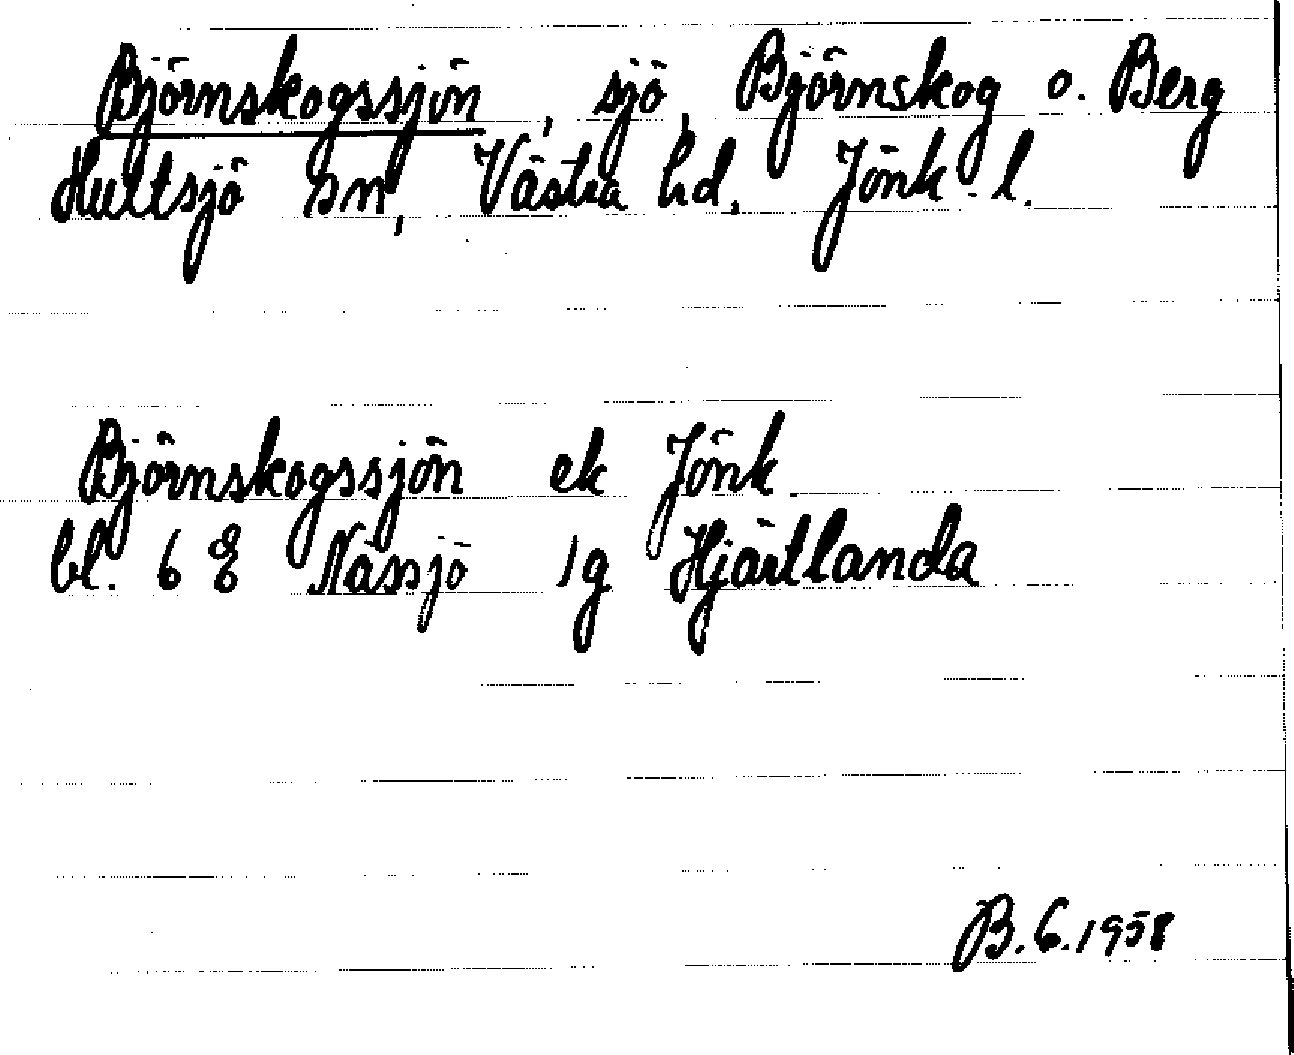 Björnskogssjön, sjö, Björnskog o. Berg
Hultsjö sn, Västra hd. Jönk. l.
Björnskogssjön ek Jönk.
bl. 6 E Nässjö 1g Hjärtlanda
B.G.1958